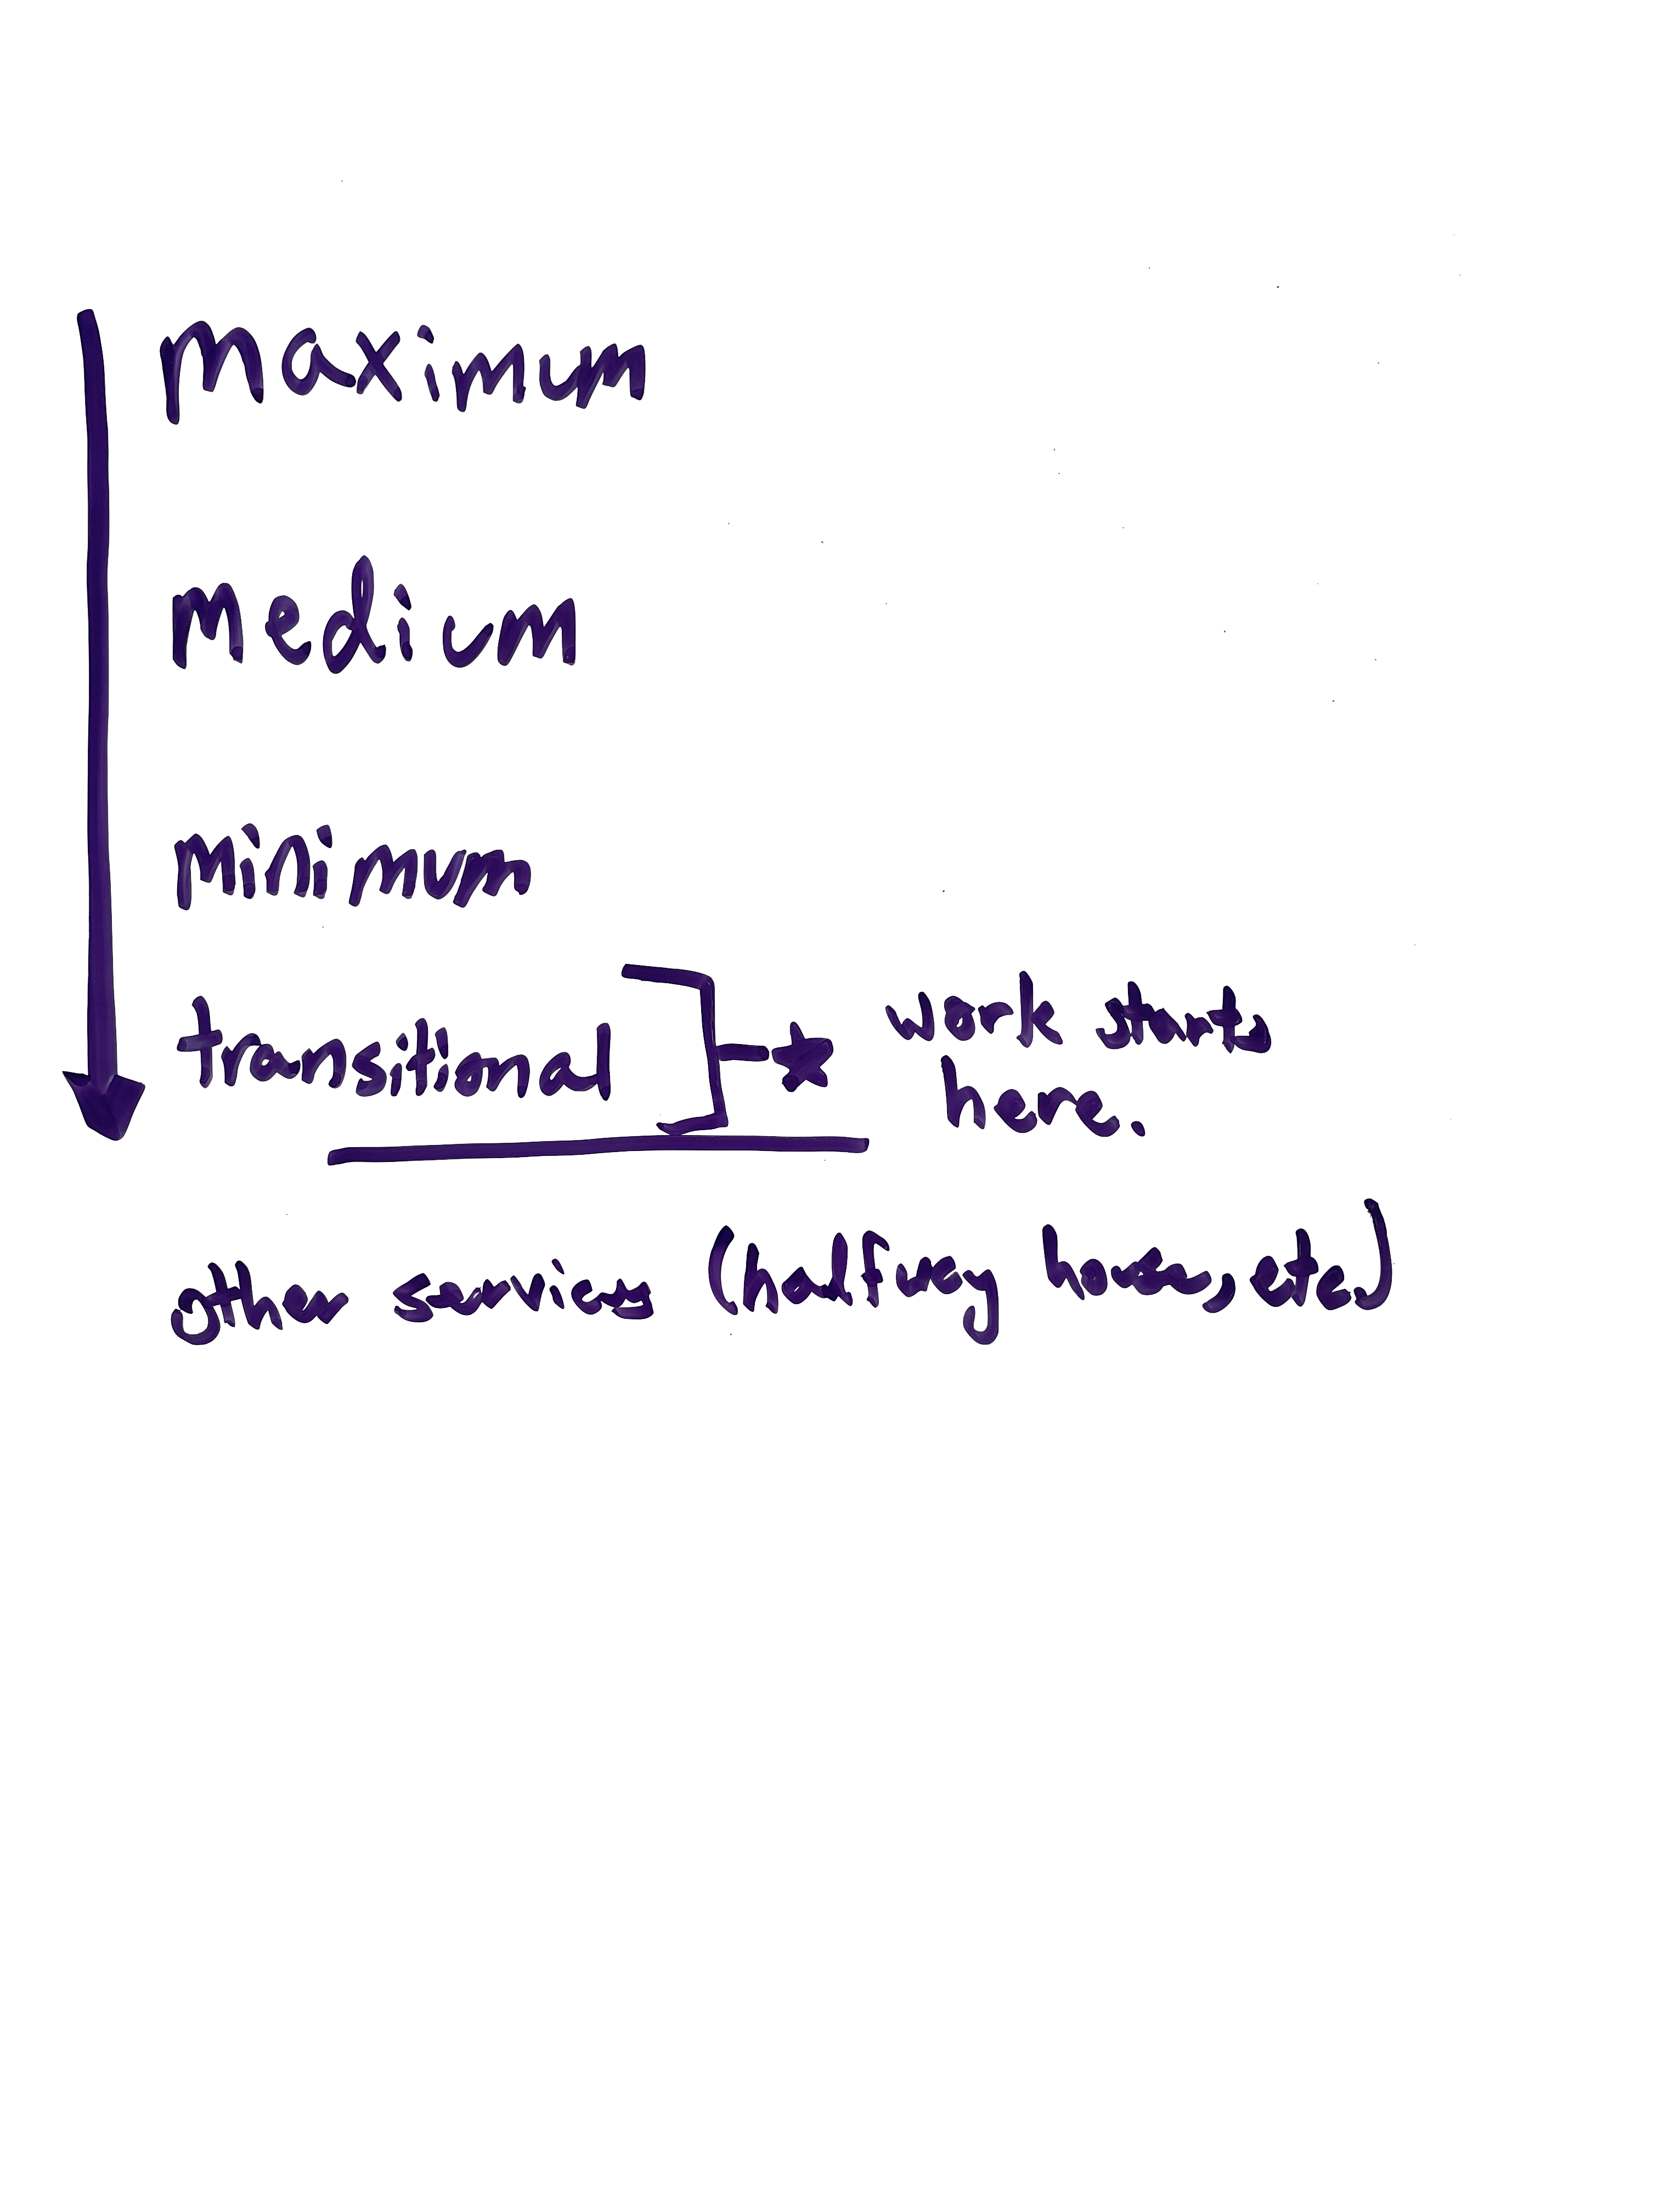 Maximum
Medium
Minimum
transitional
work starts
here.
other services (halfway house, etc)